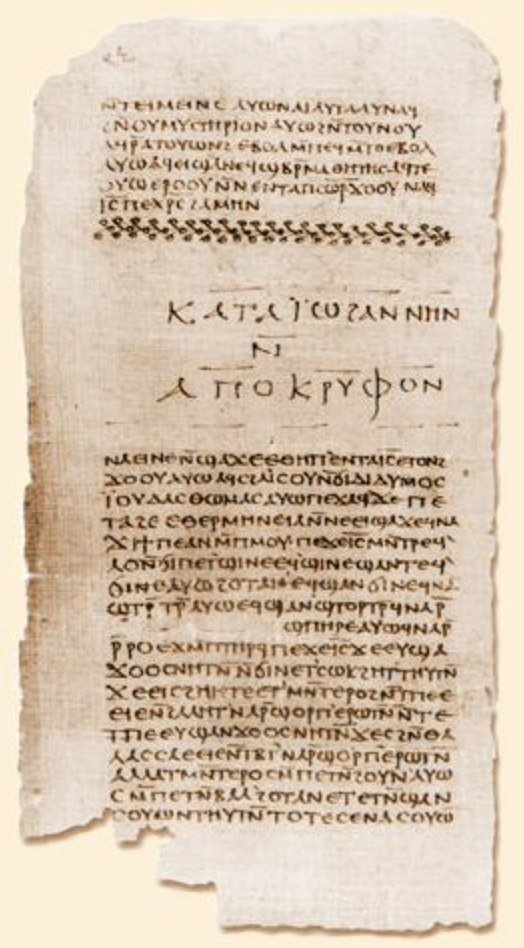 ⲛⲧⲉⲓⲙⲉⲓⲛⲉ ⲁⲩⲱ ⲛⲁⲓ ⲁⲩⲧⲁⲁⲩ ⲛⲁϥ
ϩⲛⲟⲩⲙⲩⲥⲧⲏⲣⲓⲟⲛ ⲁⲩⲱ ϩⲛ̅ⲧⲟⲩⲛⲟⲩ
ⲁϥⲣⲁⲧⲟⲩⲱⲛϩ ⲉⲃⲟⲗ ⲙ̅ⲡⲉϥⲙⲧⲟ ⲉⲃⲟⲗ
ⲁⲩⲱ ⲁϥⲉⲓ ϣⲁ ⲛⲉϥϣⲃⲣ̅ⲙⲁⲑⲏⲧⲏⲥ ⲁϥⲧⲉ
ⲟⲩⲱ ⲉⲣⲟⲟⲩ ⲛ̅ⲛⲉⲛⲧⲁⲡⲥⲱ̅ⲣ ϫⲟⲟⲩ ⲛⲁϥ
ⲓ̅ⲥ̅ ⲡⲉⲭⲣ̅ⲥ̅ ϩⲁⲙⲏⲛ
ⲕⲁⲧⲁ ⲓ̈ⲱϩⲁⲛⲛⲏⲛ
ⲛ̅ⲓ
ⲁⲡⲟⲕⲣⲩⲫⲟⲛ
ⲛⲁⲉⲓ ⲛⲉ ⲛ̅ϣⲁϫⲉ ⲉⲑⲏⲡ ⲉⲛⲧⲁⲓ̅ⲥ̅ ⲉⲧⲟⲛϩ
ϫⲟⲟⲩ ⲁⲩⲱ ⲁϥⲥϩⲁⲓ̈ⲥⲟⲩ ⲛ̅ϭⲓ ⲇⲓⲇⲩⲙⲟⲥ
ⲓ̈ⲟⲩⲇⲁⲥ ⲑⲱⲙⲁⲥ ⲁⲩⲱ ⲡⲉϫⲁϥ ϫⲉ ⲡⲉ
ⲧⲁϩⲉ ⲉⲑⲉⲣⲙⲏⲛⲉⲓⲁ ⲛ̅ⲛⲉⲉⲓϣⲁϫⲉ ϥⲛⲁ
ϫⲓ ϯⲡⲉ ⲁⲛ ⲙ̅ⲡⲙⲟⲩ ⲡⲉϫⲉ ⲓ̅ⲥ̅ ⲙⲛ̅ⲧⲣⲉϥ
ⲗⲟ ⲛ̅ϭⲓ ⲡⲉⲧϣⲓⲛⲉ ⲉϥϣⲓⲛⲉ ϣⲁⲛⲧⲉϥ
ϭⲓⲛⲉ ⲁⲩⲱ ϩⲟⲧⲁⲛ ⲉϥϣⲁⲛϭⲓⲛⲉ ϥⲛⲁ
ϣⲧⲣ̅ⲧⲣ̅ ⲁⲩⲱ ⲉϥϣⲁⲛϣⲧⲟⲣⲧⲣ̅ ϥⲛⲁⲣ̅
ϣⲡⲏⲣⲉ ⲁⲩⲱ ϥⲛⲁⲣ̅
ⲣ̅ⲣⲟ ⲉϫⲙ̅ ⲡⲧⲏⲣϥ ⲡⲉϫⲉ ⲓ̅ⲥ̅ ϫⲉ ⲉⲩϣⲁ
ϫⲟⲟⲥ ⲛⲏⲧⲛ̅ ⲛ̅ϭⲓ ⲛⲉⲧⲥⲱⲕ ϩⲏⲧⲧⲏⲩⲧⲛ̅
ϫⲉ ⲉⲓⲥϩⲏⲏⲧⲉ ⲉⲧⲙⲛ̅ⲧⲉⲣⲟ ϩⲛ̅ ⲧⲡⲉ ⲉ
ⲉⲓⲉ ⲛ̅ϩⲁⲗⲏⲧ ⲛⲁⲣ̅ ϣⲟⲣⲡ ⲉⲣⲱⲧⲛ̅ ⲛ̅ⲧⲉ
ⲧⲡⲉ ⲉⲩϣⲁⲛϫⲟⲟⲥ ⲛⲏⲧⲛ̅ ϫⲉ ⲥϩⲛ̅ ⲑⲁ
ⲗⲁⲥⲥⲁ ⲉⲉⲓⲉ ⲛ̅ⲧⲃⲧ ⲛⲁⲣ̅ ϣⲟⲣⲡ ⲉⲣⲱⲧⲛ̅
ⲁⲗⲗⲁ ⲧⲙⲛ̅ⲧⲉⲣⲟ ⲥⲙ̅ⲡⲉⲧⲛ̅ϩⲟⲩⲛ ⲁⲩⲱ
ⲥⲙ̅ⲡⲉⲧⲛ̅ⲃⲁⲗ ϩⲟⲧⲁⲛ ⲉⲧⲉⲧⲛ̅ϣⲁⲛ
ⲥⲟⲩⲱⲛ ⲧⲏⲩⲧⲛ̅ ⲧⲟⲧⲉ ⲥⲉⲛⲁⲥⲟⲩⲱ